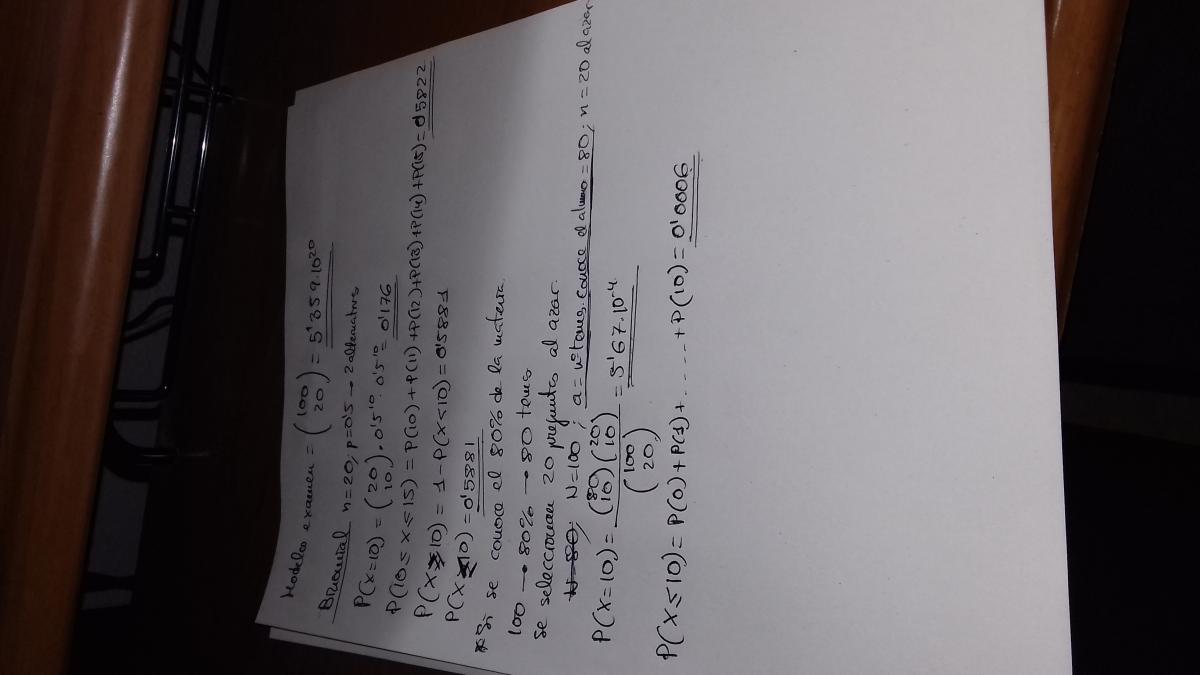 Modelos examen = (100 20) = 5'359·10²⁰
Binomial n=20, p=0'5 → 2 alternativas
P(X=10) = (20 10)·0'5¹⁰·0'5¹⁰ = 0'176
P(10≤X≤15) = P(10)+P(11)+P(12)+P(13)+P(14)+P(15) = 0'5822
P(X≥10) = 1-P(X<10) = 0'5881
P(X≤10) = 0'5881
* Si se conoce el 80% de la materia.
100 → 80% → 80 temas
Se seleccionan 20 preguntas al azar.
N=80; N=100; a = nº temas conoce el alumno = 80; n = 20 al azar
P(X=10) = (80 10)(20 10) / (100 20) = 5'67·10⁻⁴
P(X≤10) = P(0)+P(1)+.....+P(10) = 0'0006